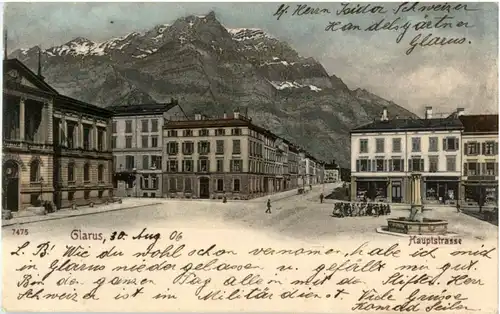 of Herrn Isidor Schweizer
Handelsgärtner
Glarus.
7475
Glarus, 30. Aug 06
Hauptstrasse
L. B! Wie du wohl schon vernomen, habe ich mich
in Glarus niedergelassen u. gefällt mir gut
Bin den ganzen Tag allein mit den Stiften. Herr
Schweizer ist im Militärdienst. Viele Grüsse
Konrad Seiler